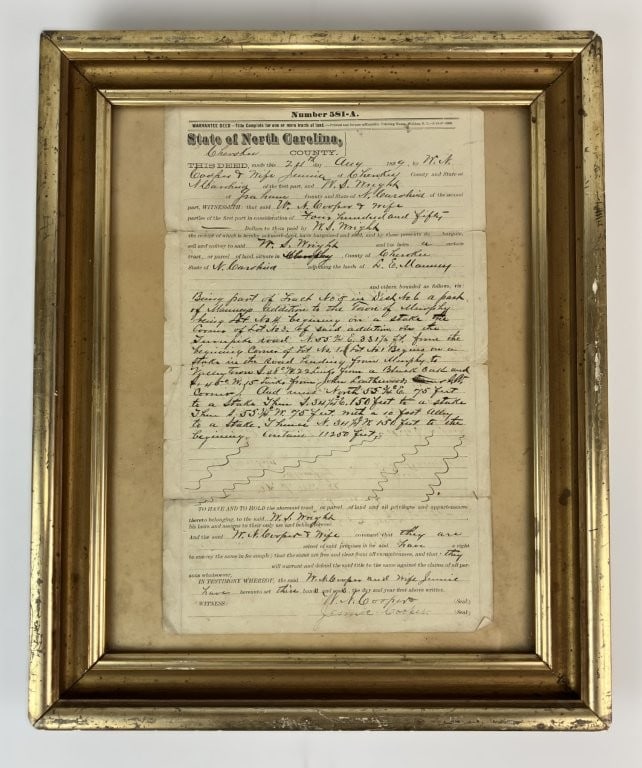 Number 581-A.
WARRANTEE DEED—Title Complete for one or more tracts of land.
State of North Carolina,
Cherokee COUNTY.
THIS DEED, made this 28th day Aug 1889, by W. N.
Cooper & Wife Jennie of Cherokee County and State of
N. Carolina of the first part, and W. S. Wright
of Graham County and State of N. Carolina of the second
part, WITNESSETH: that said W. N. Cooper & Wife
parties of the first part in consideration of Four hundred and fifty
Dollars to them paid by W. S. Wright
the receipt of which is hereby acknowledged, have bargained and sold, and by these presents do bargain,
sell and convey to said W. S. Wright and his heirs a certain
tract or parcel of land, situate in County of Cherokee
State of N. Carolina adjoining the lands of L. E. Mauney
and others bounded as follows, viz:
Being part of Track No 5 in Dist No 6 a part
of Mauneys addition to the Town of Murphy
being Lot No 4 begining on a stake the
Corner of Lot No 3 of said addition on the
Turnpike road N. 55 ½ E. 331½ ft. from the
begining Corner of Lot No. 1 Lot No 1 Begins on a
stake in the Road leading from Murphy to
S. 88° W. 22 Links from a Black Oak and
46° W. 15 Links from John
Corner, And runs North 55 ½° E. 75 feet
to a Stake Then S. 34½ E. 150 feet to a stake
Then S. 55 ½ W. 75 feet with a 10 foot Alley
to a Stake, Thence N. 34½ W 150 feet to the
begining, Contains 11250 feet,
TO HAVE AND TO HOLD the aforesaid tract or parcel of land and all privileges and appurtenances
thereto belonging, to the said W. S. Wright
his heirs and assigns to their only use and behoof forever.
And the said W. N. Cooper & Wife covenant that they are
seized of said premises in fee and have a right
to convey the same in fee simple; that the same are free and clear from all encumbrances, and that they
will warrant and defend the said title to the same against the claims of all per-
sons whatsoever.
IN TESTIMONY WHEREOF, the said W. N. Cooper and Wife Jennie
have hereunto set their hands and seals, the day and year first above written.
WITNESS: W. N. Cooper (Seal)
Jennie Cooper (Seal)